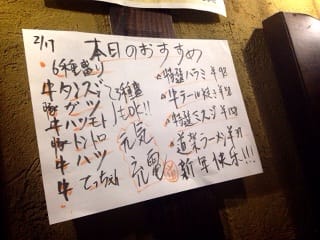 2/17
本日のおすすめ
6種盛り
牛タンスジ
豚ガツ
牛ハツモト
豚トントロ
牛ハツ
牛てっちゃん
3種盛
もOK!!
元気
充電
特選ハラミ
牛テール
特選ミスジ
道楽ラーメン
新年快乐!!!